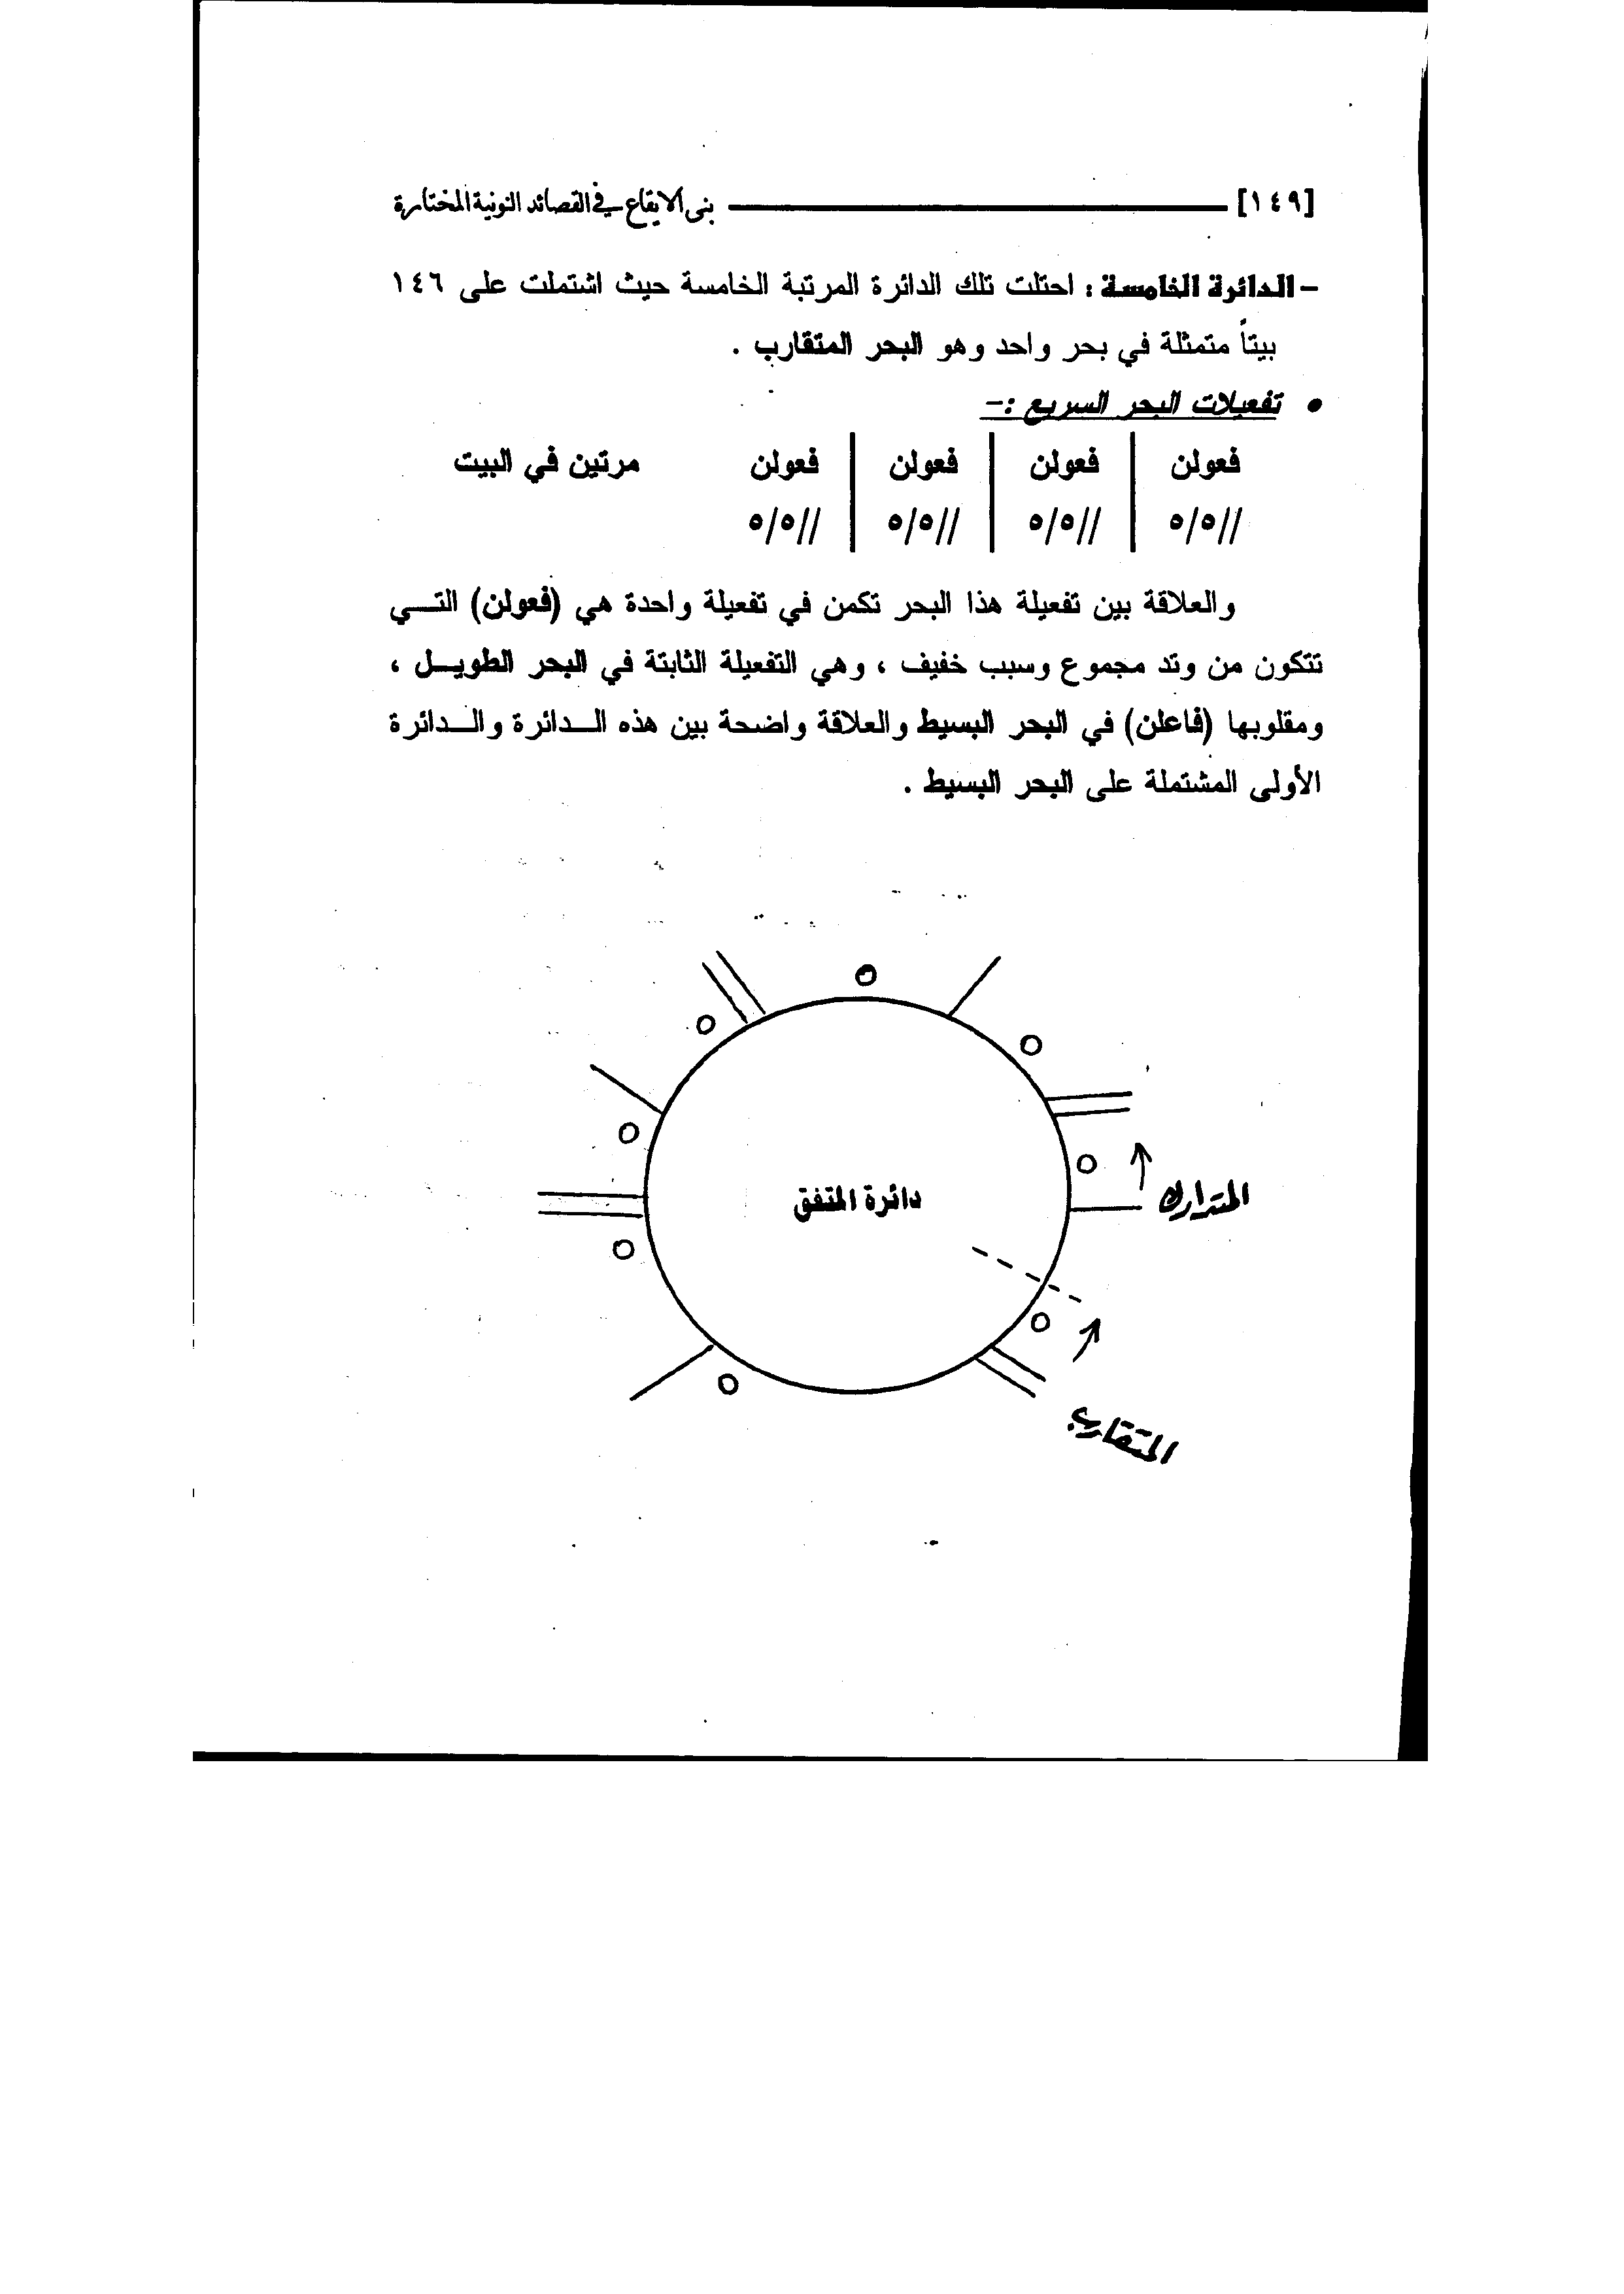 [١٤٩] بنى الإيقاع في القصائد النونية المختارة
- الدائرة الخامسة : احتلت تلك الدائرة المرتبة الخامسة حيث اشتملت على ١٤٦
بيتاً متمثلة في بحر واحد وهو البحر المتقارب .
• تفعيلات البحر السريع :-
فعولن | فعولن | فعولن | فعولن مرتين في البيت
//٥/٥ | //٥/٥ | //٥/٥ | //٥/٥
والعلاقة بين تفعيلة هذا البحر تكمن في تفعيلة واحدة هي (فعولن) التـــي
تتكون من وتد مجموع وسبب خفيف ، وهي التفعيلة الثابتة في البحر الطويـــل ،
ومقلوبها (فاعلن) في البحر البسيط والعلاقة واضحة بين هذه الــدائرة والــدائرة
الأولى المشتملة على البحر البسيط .
المتدارك
دائرة المتفق
المتقارب